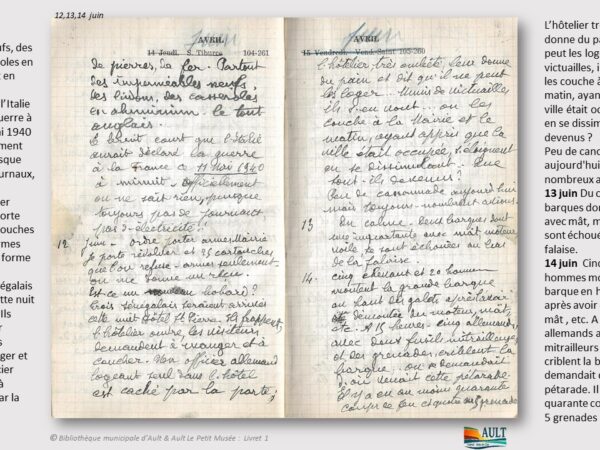 12,13,14 juin
ufs, des
oles en
t en
l'Italie
uerre à
ai 1940
ment
sque
urnaux,
er
orte
ouches
mes
forme
égalais
tte nuit
Ils
rs
ger et
cier
à
ar la
AVRIL
14 Jeudi. S. Tiburce 104-261
de pierres, de fer. Partout
des imperméables neufs,
des bidons, des casseroles
en aluminium. le tout
anglais.
Le bruit court que l'Italie
aurait déclaré la guerre
à la France ce 11 mai 1940
à minuit. Officiellement
on ne sait rien, puisque
toujours pas de journaux
pas d'électricité !!
12 juin - ordre porter armes Mairie
Je porte révolver et 25 cartouches
que l'on refuse - armes seulement
on me donne un reçu
Est-ce un
Trois sénégalais seraient arrivés
cette nuit Hôtel St Pierre. Ils frappent,
l'hôtelier ouvre, les visiteurs
demandent à manger et à
coucher. Un officier allemand
logeant seul dans l'hôtel
est caché par la porte ;
AVRIL
15 Vendredi. Vend.-Saint 105-260
l'hôtelier très embêté, leur donne
du pain et dit qu'il ne peut
les loger... Munis de victuailles
ils s'en vont... on les
couche à la Mairie et le
matin, ayant appris que la
ville était occupée, s'éloignent
en se dissimulant. Que
sont-ils devenus ?
Peu de canonnade aujourd'hui
mais toujours nombreux avions.
13 Du calme. deux barques dont
une importante avec mât, moteur
voile se sont échouées au bas
de la falaise.
14. cinq chevaux et 20 hommes
montent la grande barque
en haut des galets après avoir
démontée du moteur, mât,
etc. A 15 heures - cinq allemands
avec deux fusils mitrailleurs
et des grenades, criblent la
barque... on se demandait
d'où venait cette pétarade.
Il y a eu au moins quarante
coups de feu et quatre ou 5 grenades
L'hôtelier tr
donne du pa
peut les log
victuailles, i
les couche à
matin, ayan
ville était oc
en se dissim
devenus ?
Peu de cano
aujourd'hui
nombreux a
13 juin Du c
barques don
avec mât, m
sont échoué
falaise.
14 juin Cinq
hommes mo
barque en h
après avoir
mât , etc. A
allemands a
mitrailleurs
criblent la b
demandait d
pétarade. Il
quarante co
5 grenades
© Bibliothèque municipale d'Ault & Ault Le Petit Musée : Livret 1
AULT